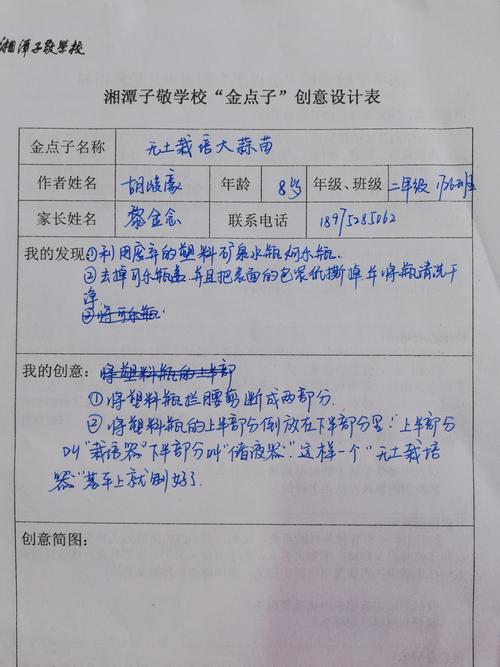 湘潭子敬学校
湘潭子敬学校“金点子”创意设计表
金点子名称 无土栽培大蒜苗
作者姓名 胡峻豪 年龄 8岁 年级、班级 二年级 1726班
家长姓名 黎金念 联系电话 18975285062
我的发现 ①利用废弃的塑料矿泉水瓶何乐瓶.
②去掉可乐瓶盖并且把表面的包装纸撕掉并将瓶清洗干
净.
③将可乐瓶
我的创意: 将塑料瓶的上半部
①将塑料瓶拦腰剪断成两部分.
②将塑料瓶的上半部分倒放在下半部分里:“上半部分
叫“栽培器”下半部分叫“储液器”.这样一个“无土栽培
器”基本上就制好了.
创意简图: